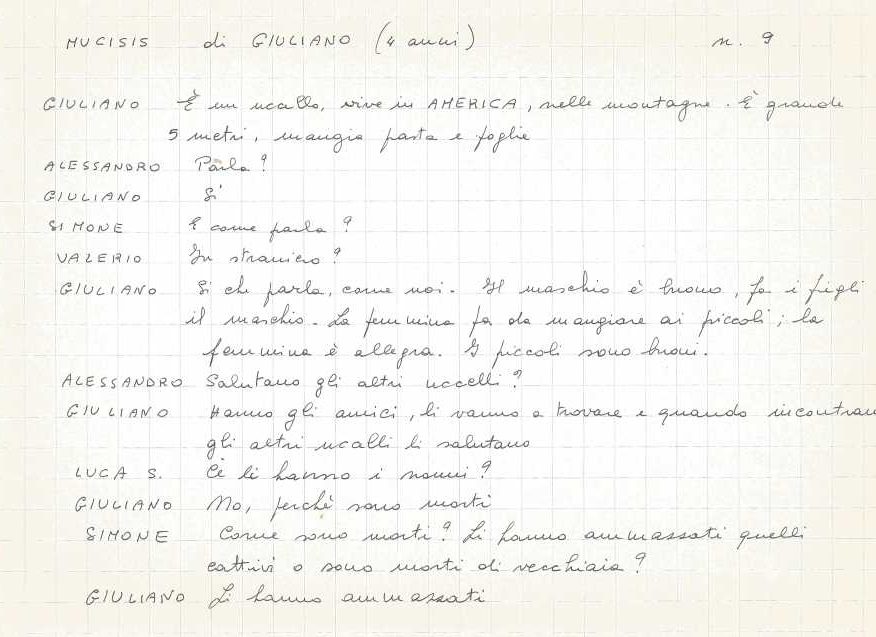 MUCISIS di GIULIANO (4 anni) n. 9
GIULIANO È un ucallo, vive in AMERICA, nelle montagne. È grande
5 metri, mangia pasta e foglie
ALESSANDRO Parla?
GIULIANO Si'
SIMONE E come parla?
VALERIO In straniero?
GIULIANO Si che parla, come noi. Il maschio è buono, fa i figli
il maschio. La femmina fa da mangiare ai piccoli; la
femmina è allegra. I piccoli sono buoni.
ALESSANDRO Salutano gli altri uccelli?
GIULIANO Hanno gli amici, li vanno a trovare e quando incontran
gli altri ucalli li salutano
LUCA S. Ce li hanno i nonni?
GIULIANO No, perchè sono morti
SIMONE Come sono morti? Li hanno ammassati quelli
cattivi o sono morti di vecchiaia?
GIULIANO Li hanno ammassati